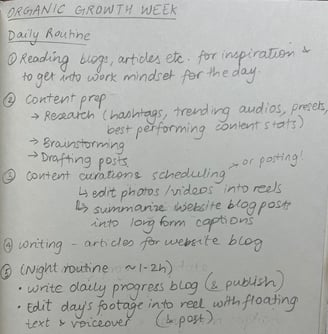 ORGANIC GROWTH WEEK
Daily Routine
① Reading blogs, articles etc. for inspiration &
to get into work mindset for the day.
② Content prep
→ Research (hashtags, trending audios, presets,
best performing content stats)
→ Brainstorming
→ Drafting posts
③ Content curation & scheduling or posting!
↳ edit photos/videos into reels
↳ summarize website blog posts
into long form captions
④ Writing - articles for website blog
⑤ (Night routine ~1-2h)
• Write daily progress blog (& publish)
• Edit day's footage into reel with floating
text & voiceover (& post)